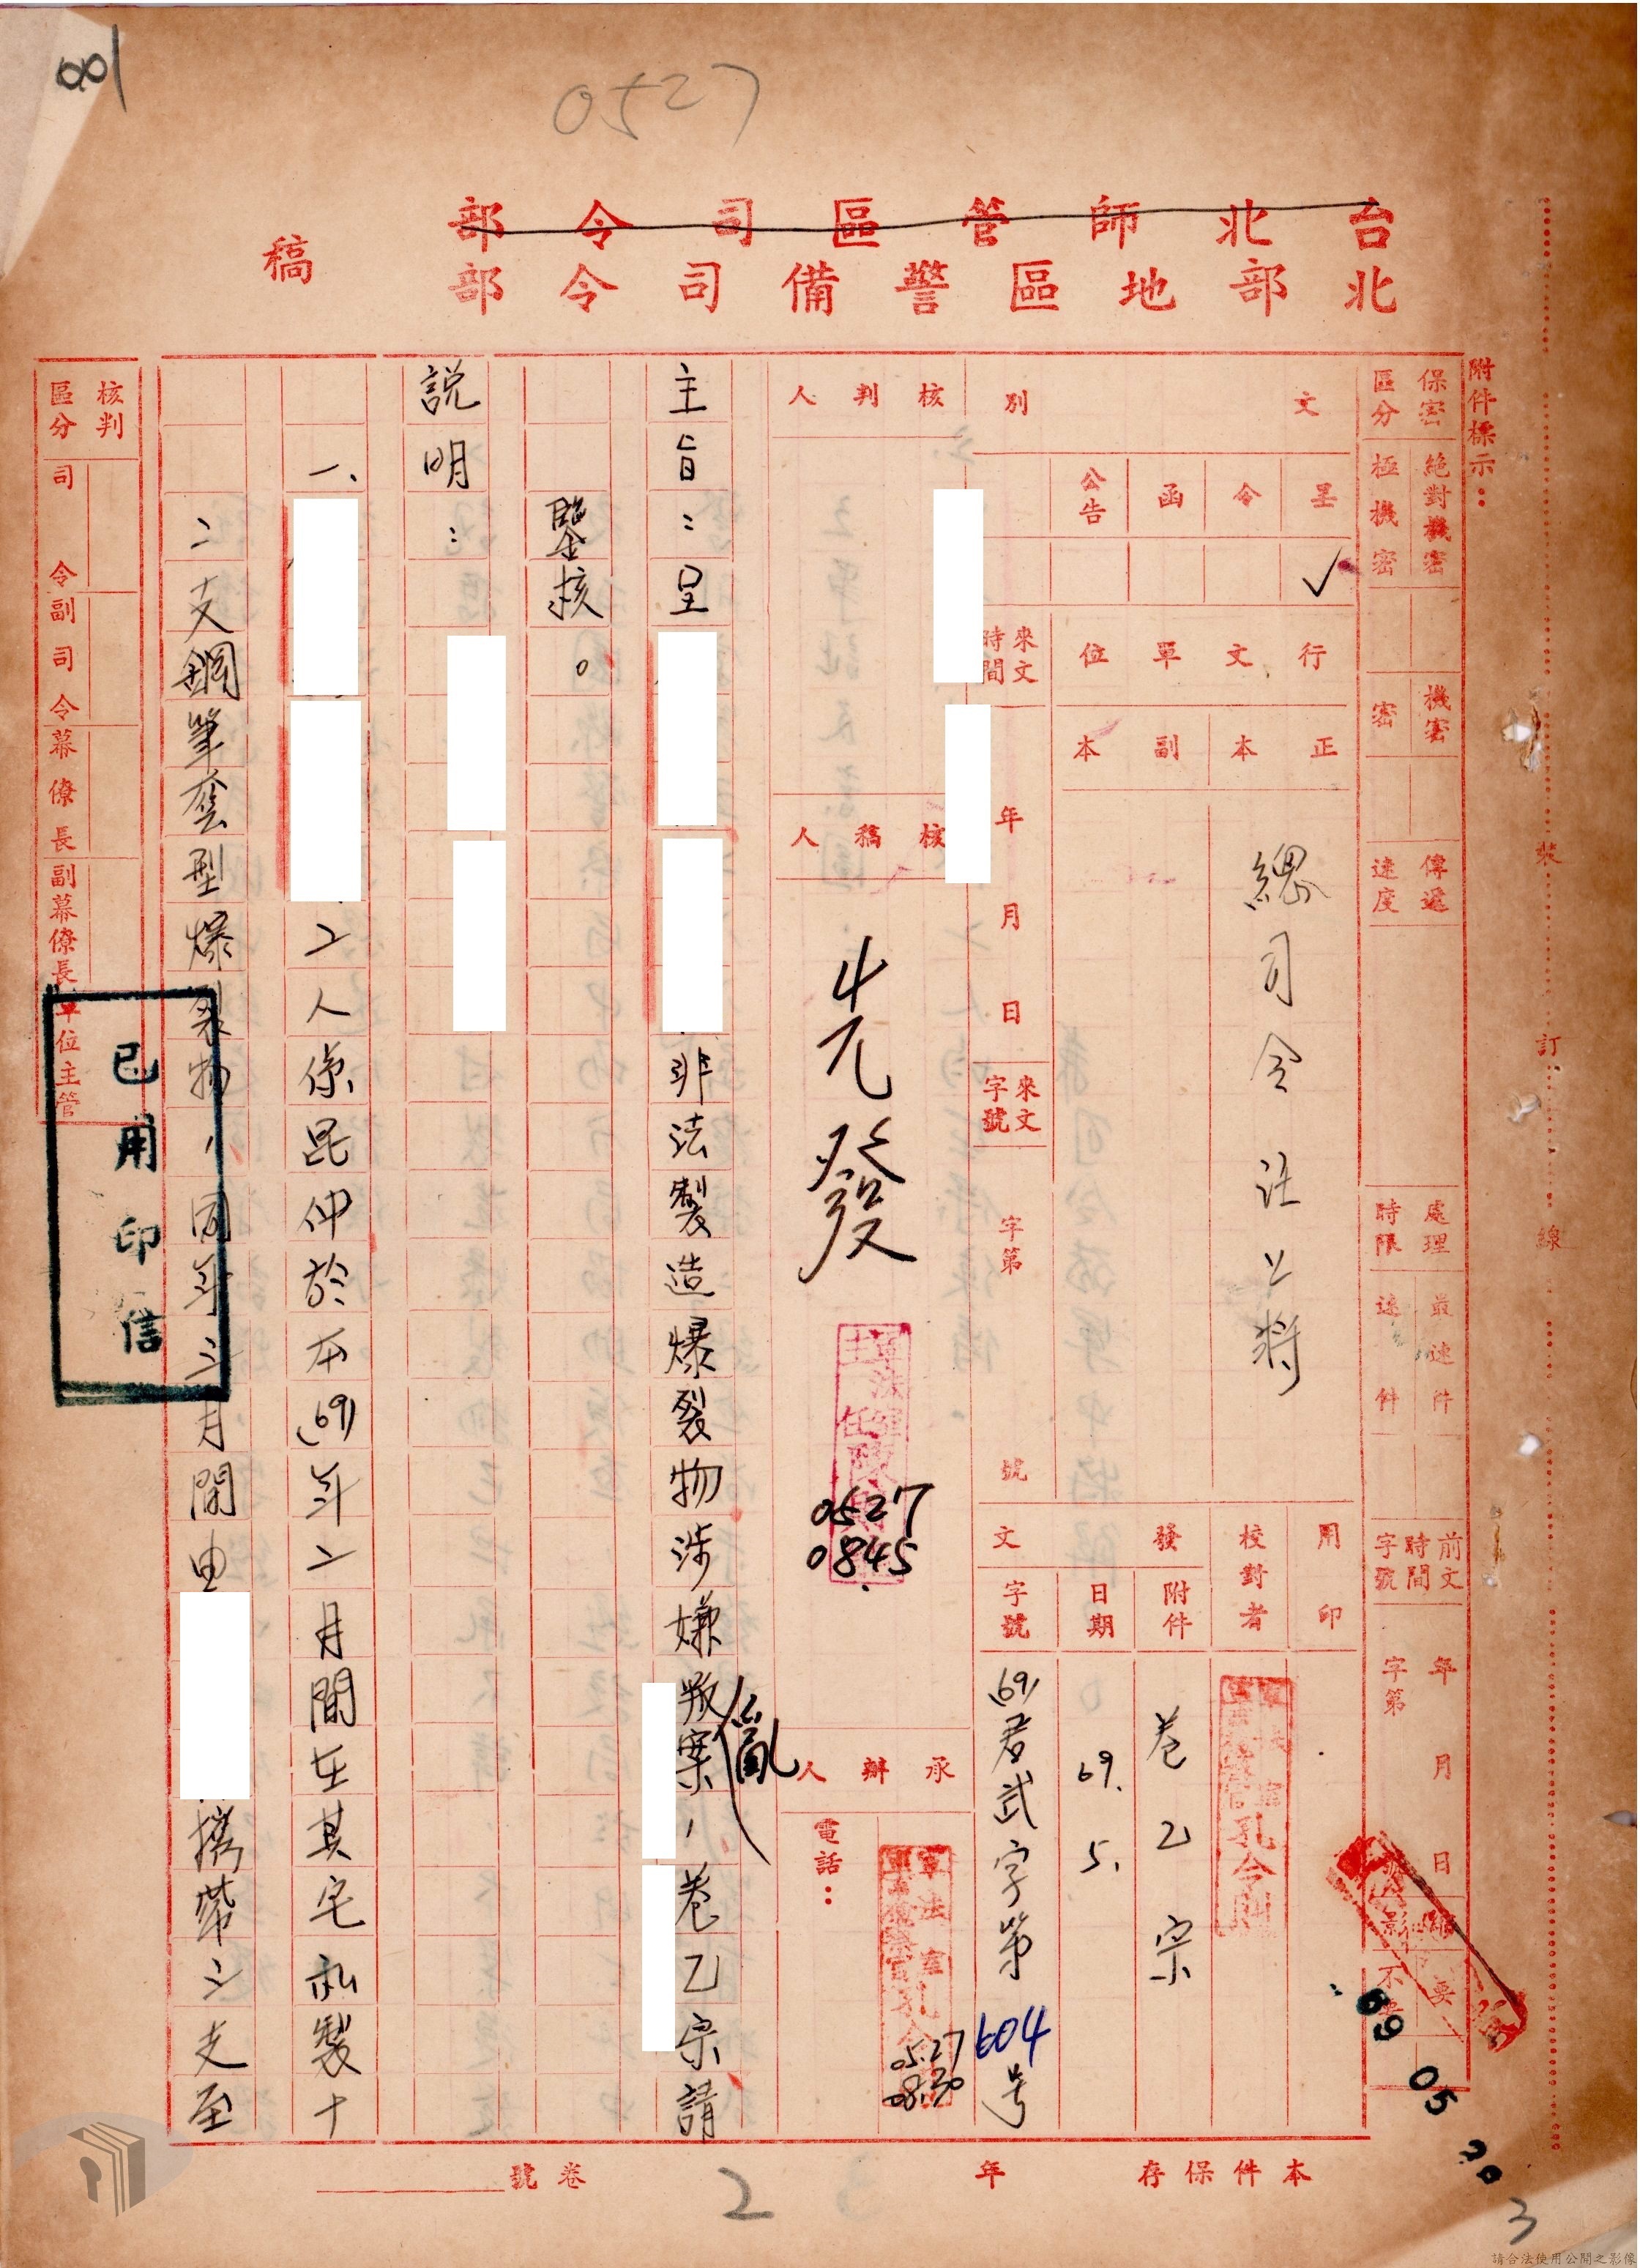 001
0527
台北師管區司令部
北部地區警備司令部
稿
附件標示：
保密區分
絕對機密
極機密
機密
密
傳遞速度
處理時限
最速件
速件
前文時間字號
年月日
字第
文別
呈
令
函
公告
✓
行文單位
正本
副本
總司令汪上將
來文時間
年月日
來文字號
字第
號
用印
校對者
發文
附件
日期
字號
卷乙宗
69.5.
(69)君武字第604号
核判人
核稿人
先發
0527
0845
承辦人
電話：
孔令則
0527
0830
主旨：呈
非法製造爆裂物涉嫌叛亂案，卷乙宗請
鑒核。
說明：
一、
二人係昆仲於本(69)年二月間在其宅私製十
二支鋼筆套型爆裂物，同年三月間由
攜帶三支至
核判區分
司令
副司令
幕僚長
副幕僚長
單位主管
已用印信
裝
訂
線
69 05
本件保存
年
卷號
2
3
請合法使用公開之影像